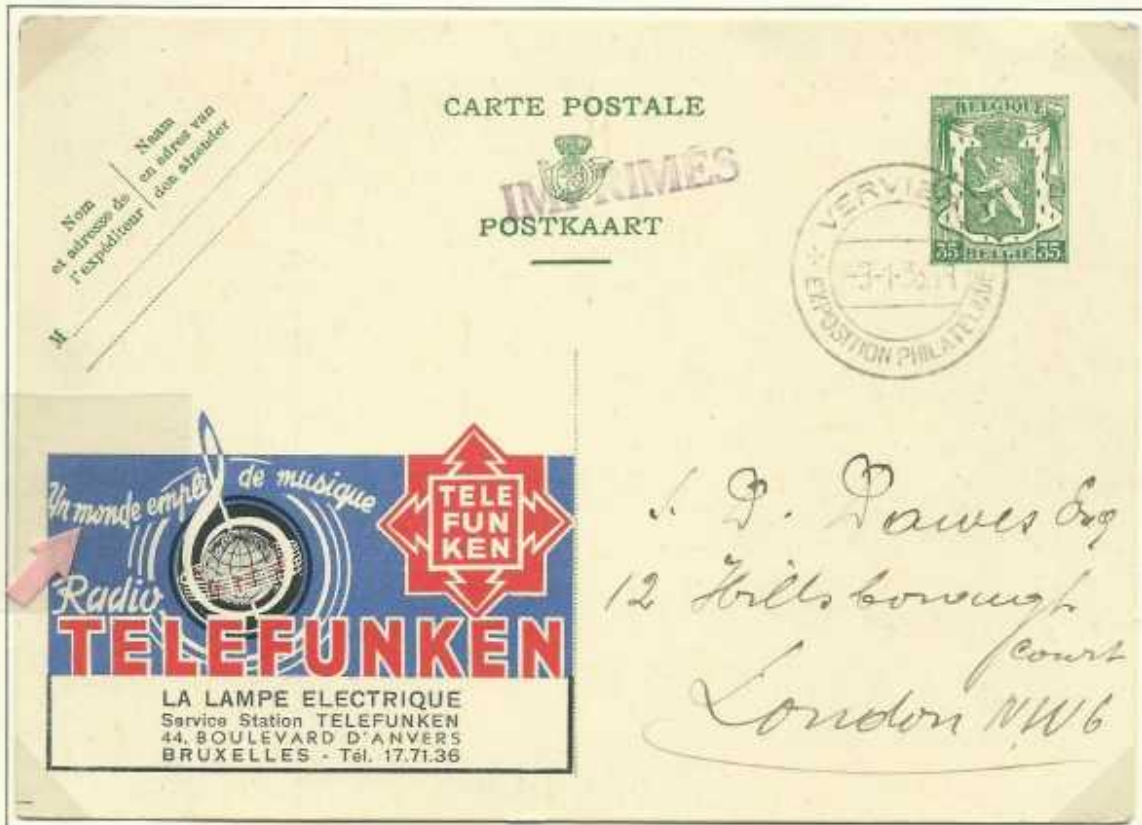 CARTE POSTALE
IMPRIMÉS
POSTKAART
Nom
et adresse de
l'expéditeur
Naam
en adres van
den afzender
M
BELGIQUE
35 BELGIE 35
VERVIE
EXPOSITION PHILATELIQUE
Un monde empli de musique
TELE
FUN
KEN
Radio
TELEFUNKEN
LA LAMPE ELECTRIQUE
Service Station TELEFUNKEN
44, BOULEVARD D'ANVERS
BRUXELLES - Tél. 17.71.36
D. Dawes Esq
12 Hillsborough
Court
London NW6